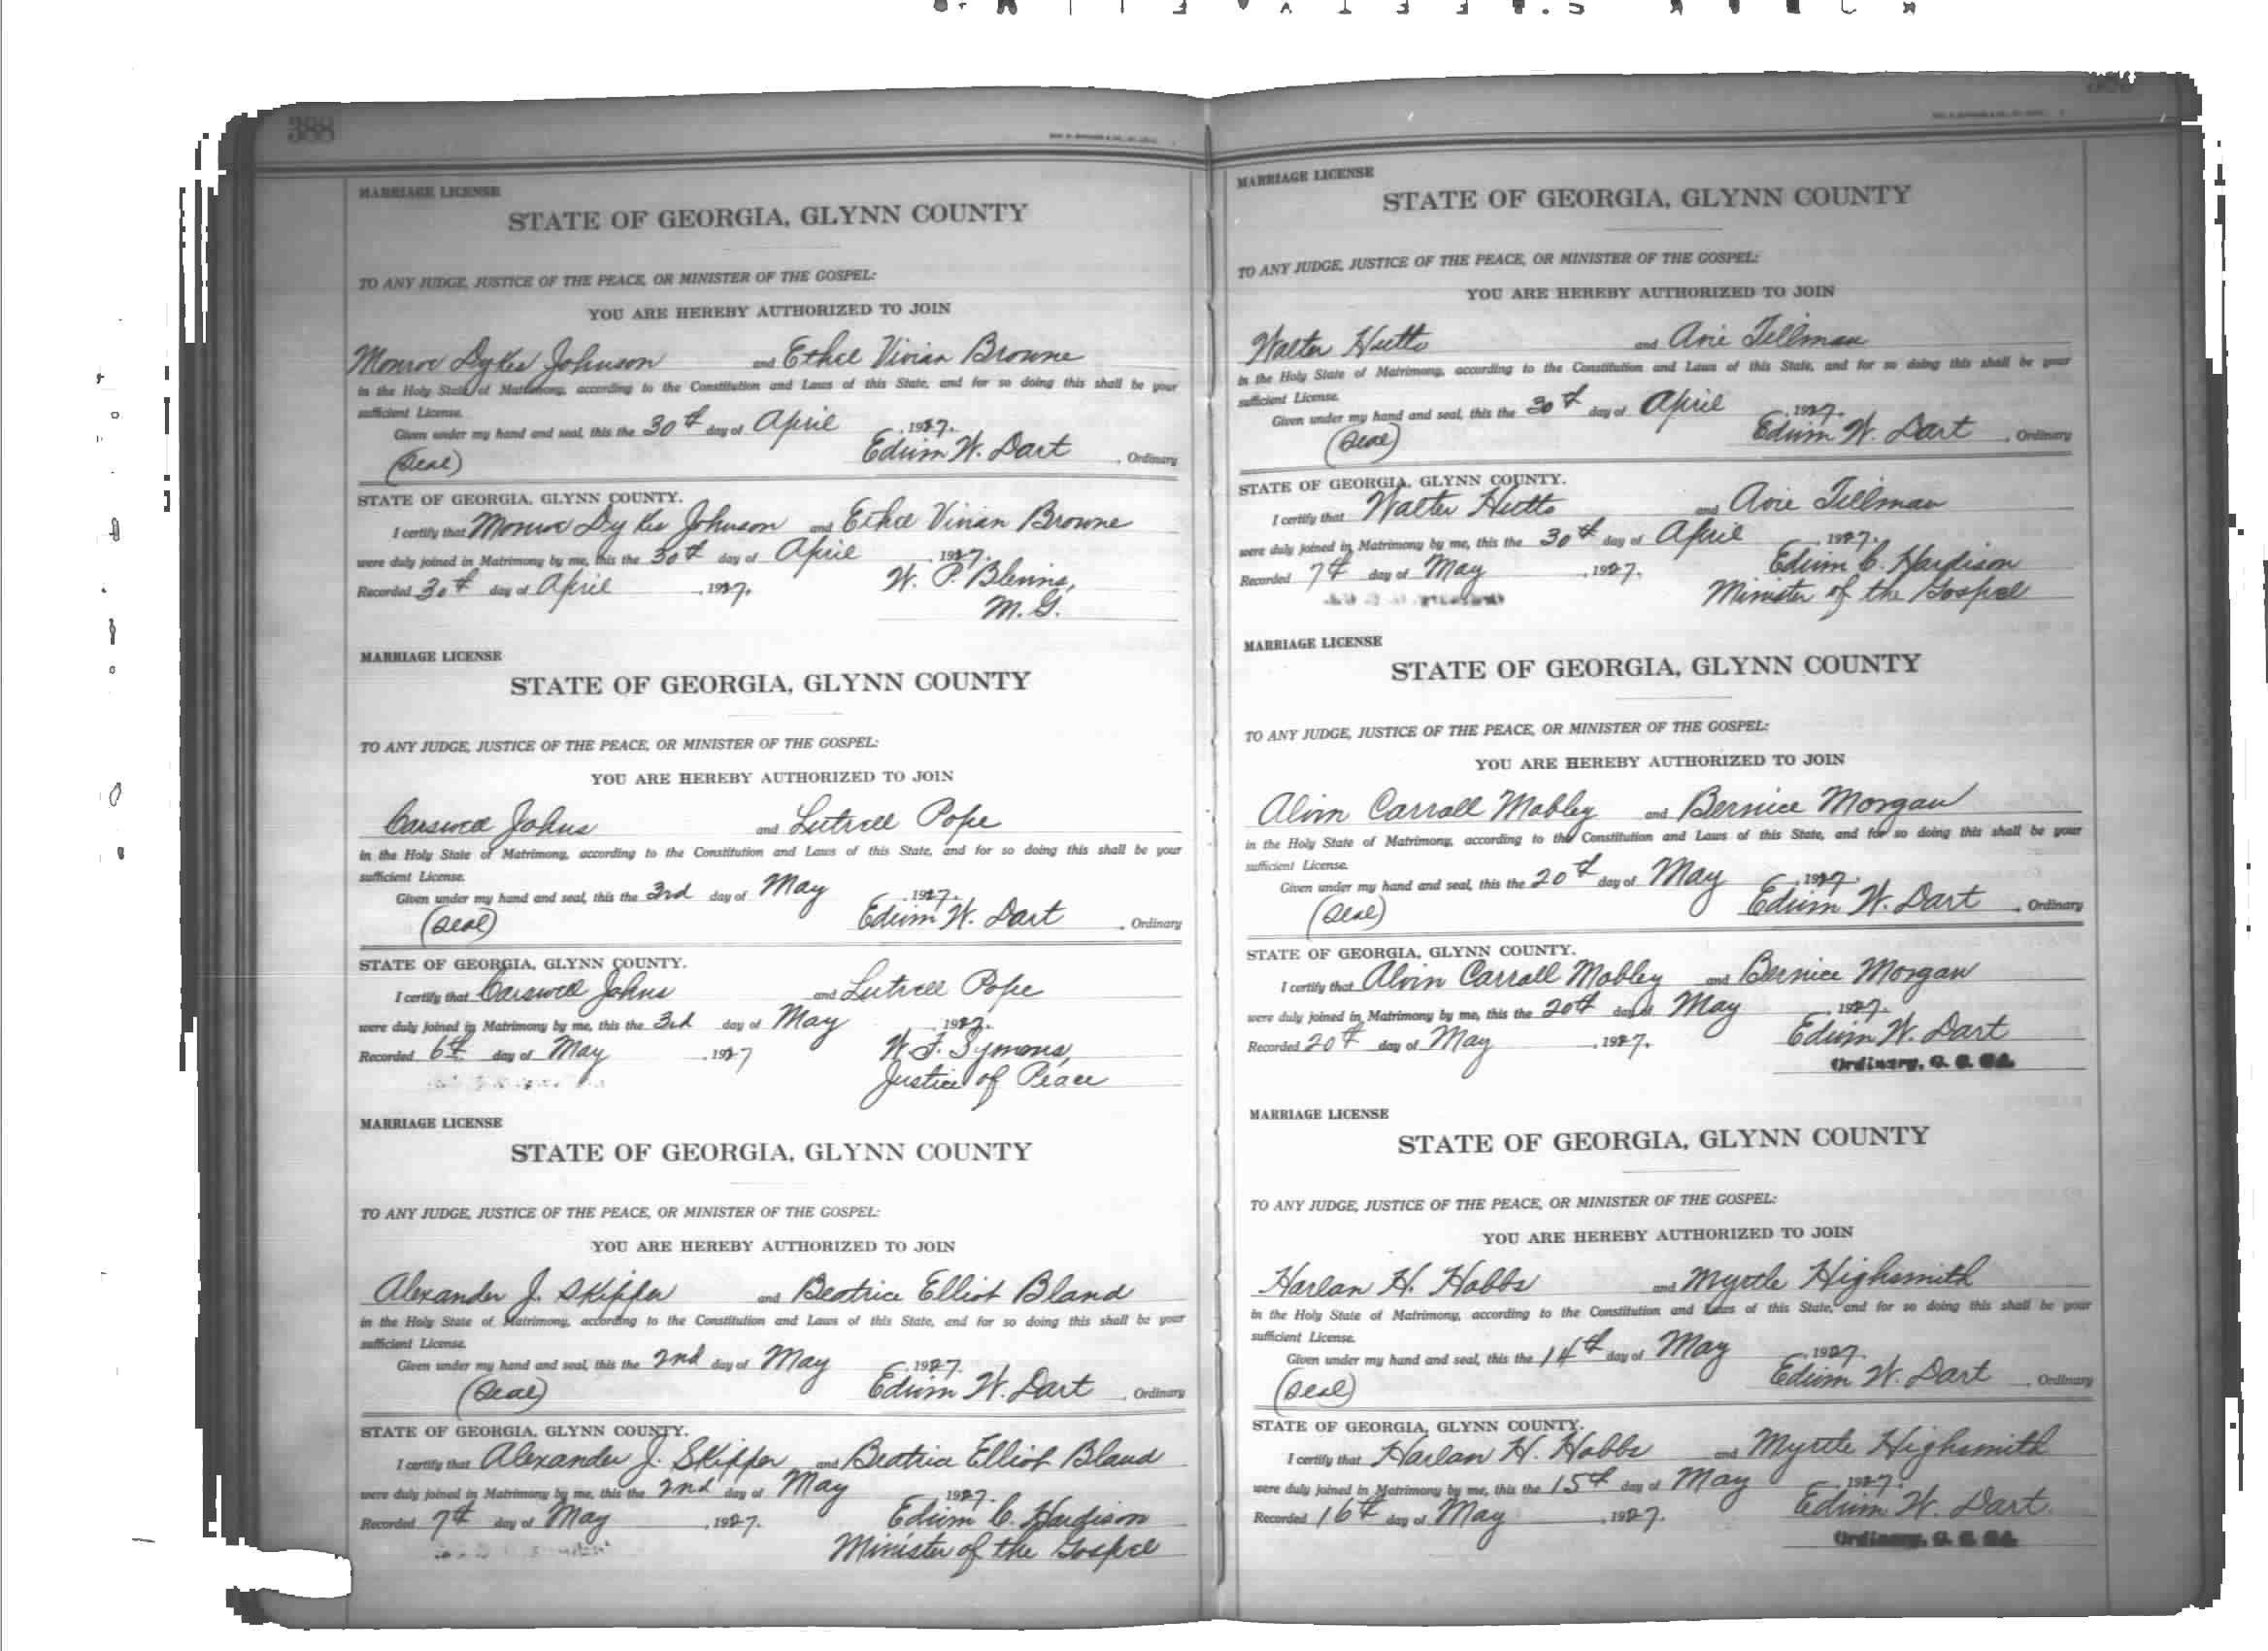 388
MARRIAGE LICENSE
STATE OF GEORGIA, GLYNN COUNTY
TO ANY JUDGE, JUSTICE OF THE PEACE, OR MINISTER OF THE GOSPEL:
YOU ARE HEREBY AUTHORIZED TO JOIN
Monroe Dykes Johnson and Ethel Vivian Browne
in the Holy State of Matrimony, according to the Constitution and Laws of this State, and for so doing this shall be your
sufficient License.
Given under my hand and seal, this the 30th day of April, 1927.
(Seal) Edwin W. Dart, Ordinary
STATE OF GEORGIA, GLYNN COUNTY.
I certify that Monroe Dykes Johnson and Ethel Vivian Browne
were duly joined in Matrimony by me, this the 30th day of April, 1927.
Recorded 30th day of April, 1927. W. P. Blevins,
M. G.
MARRIAGE LICENSE
STATE OF GEORGIA, GLYNN COUNTY
TO ANY JUDGE, JUSTICE OF THE PEACE, OR MINISTER OF THE GOSPEL:
YOU ARE HEREBY AUTHORIZED TO JOIN
Carswell Johns and Lutrell Pope
in the Holy State of Matrimony, according to the Constitution and Laws of this State, and for so doing this shall be your
sufficient License.
Given under my hand and seal, this the 3rd day of May, 1927.
(Seal) Edwin W. Dart, Ordinary
STATE OF GEORGIA, GLYNN COUNTY.
I certify that Carswell Johns and Lutrell Pope
were duly joined in Matrimony by me, this the 3rd day of May, 1927.
Recorded 6th day of May, 1927 W. F. Symons,
Justice of Peace
MARRIAGE LICENSE
STATE OF GEORGIA, GLYNN COUNTY
TO ANY JUDGE, JUSTICE OF THE PEACE, OR MINISTER OF THE GOSPEL:
YOU ARE HEREBY AUTHORIZED TO JOIN
Alexander J. Skipper and Beatrice Elliot Bland
in the Holy State of Matrimony, according to the Constitution and Laws of this State, and for so doing this shall be your
sufficient License.
Given under my hand and seal, this the 2nd day of May, 1927.
(Seal) Edwin W. Dart, Ordinary
STATE OF GEORGIA, GLYNN COUNTY.
I certify that Alexander J. Skipper and Beatrice Elliot Bland
were duly joined in Matrimony by me, this the 2nd day of May 1927.
Recorded 7th day of May, 1927. Edwin C. Hardison
Minister of the Gospel
MARRIAGE LICENSE
STATE OF GEORGIA, GLYNN COUNTY
TO ANY JUDGE, JUSTICE OF THE PEACE, OR MINISTER OF THE GOSPEL:
YOU ARE HEREBY AUTHORIZED TO JOIN
Walter Hutto and Avie Tillman
in the Holy State of Matrimony, according to the Constitution and Laws of this State, and for so doing this shall be your
sufficient License.
Given under my hand and seal, this the 30th day of April, 1927.
(Seal) Edwin W. Dart, Ordinary
STATE OF GEORGIA, GLYNN COUNTY.
I certify that Walter Hutto and Avie Tillman
were duly joined in Matrimony by me, this the 30th day of April, 1927.
Recorded 7th day of May, 1927. Edwin C. Hardison
Minister of the Gospel
MARRIAGE LICENSE
STATE OF GEORGIA, GLYNN COUNTY
TO ANY JUDGE, JUSTICE OF THE PEACE, OR MINISTER OF THE GOSPEL:
YOU ARE HEREBY AUTHORIZED TO JOIN
Alvin Carrall Mobley and Bernice Morgan
in the Holy State of Matrimony, according to the Constitution and Laws of this State, and for so doing this shall be your
sufficient License.
Given under my hand and seal, this the 20th day of May, 1927.
(Seal) Edwin W. Dart, Ordinary
STATE OF GEORGIA, GLYNN COUNTY.
I certify that Alvin Carrall Mobley and Bernice Morgan
were duly joined in Matrimony by me, this the 20th day of May, 1927.
Recorded 20th day of May, 1927. Edwin W. Dart
Ordinary, G. C. GA.
MARRIAGE LICENSE
STATE OF GEORGIA, GLYNN COUNTY
TO ANY JUDGE, JUSTICE OF THE PEACE, OR MINISTER OF THE GOSPEL:
YOU ARE HEREBY AUTHORIZED TO JOIN
Harlan H. Hobbs and Myrtle Highsmith
in the Holy State of Matrimony, according to the Constitution and Laws of this State, and for so doing this shall be your
sufficient License.
Given under my hand and seal, this the 14th day of May, 1927.
(Seal) Edwin W. Dart, Ordinary
STATE OF GEORGIA, GLYNN COUNTY.
I certify that Harlan H. Hobbs and Myrtle Highsmith
were duly joined in Matrimony by me, this the 15th day of May, 1927.
Recorded 16th day of May, 1927. Edwin W. Dart.
Ordinary, G. C. GA.